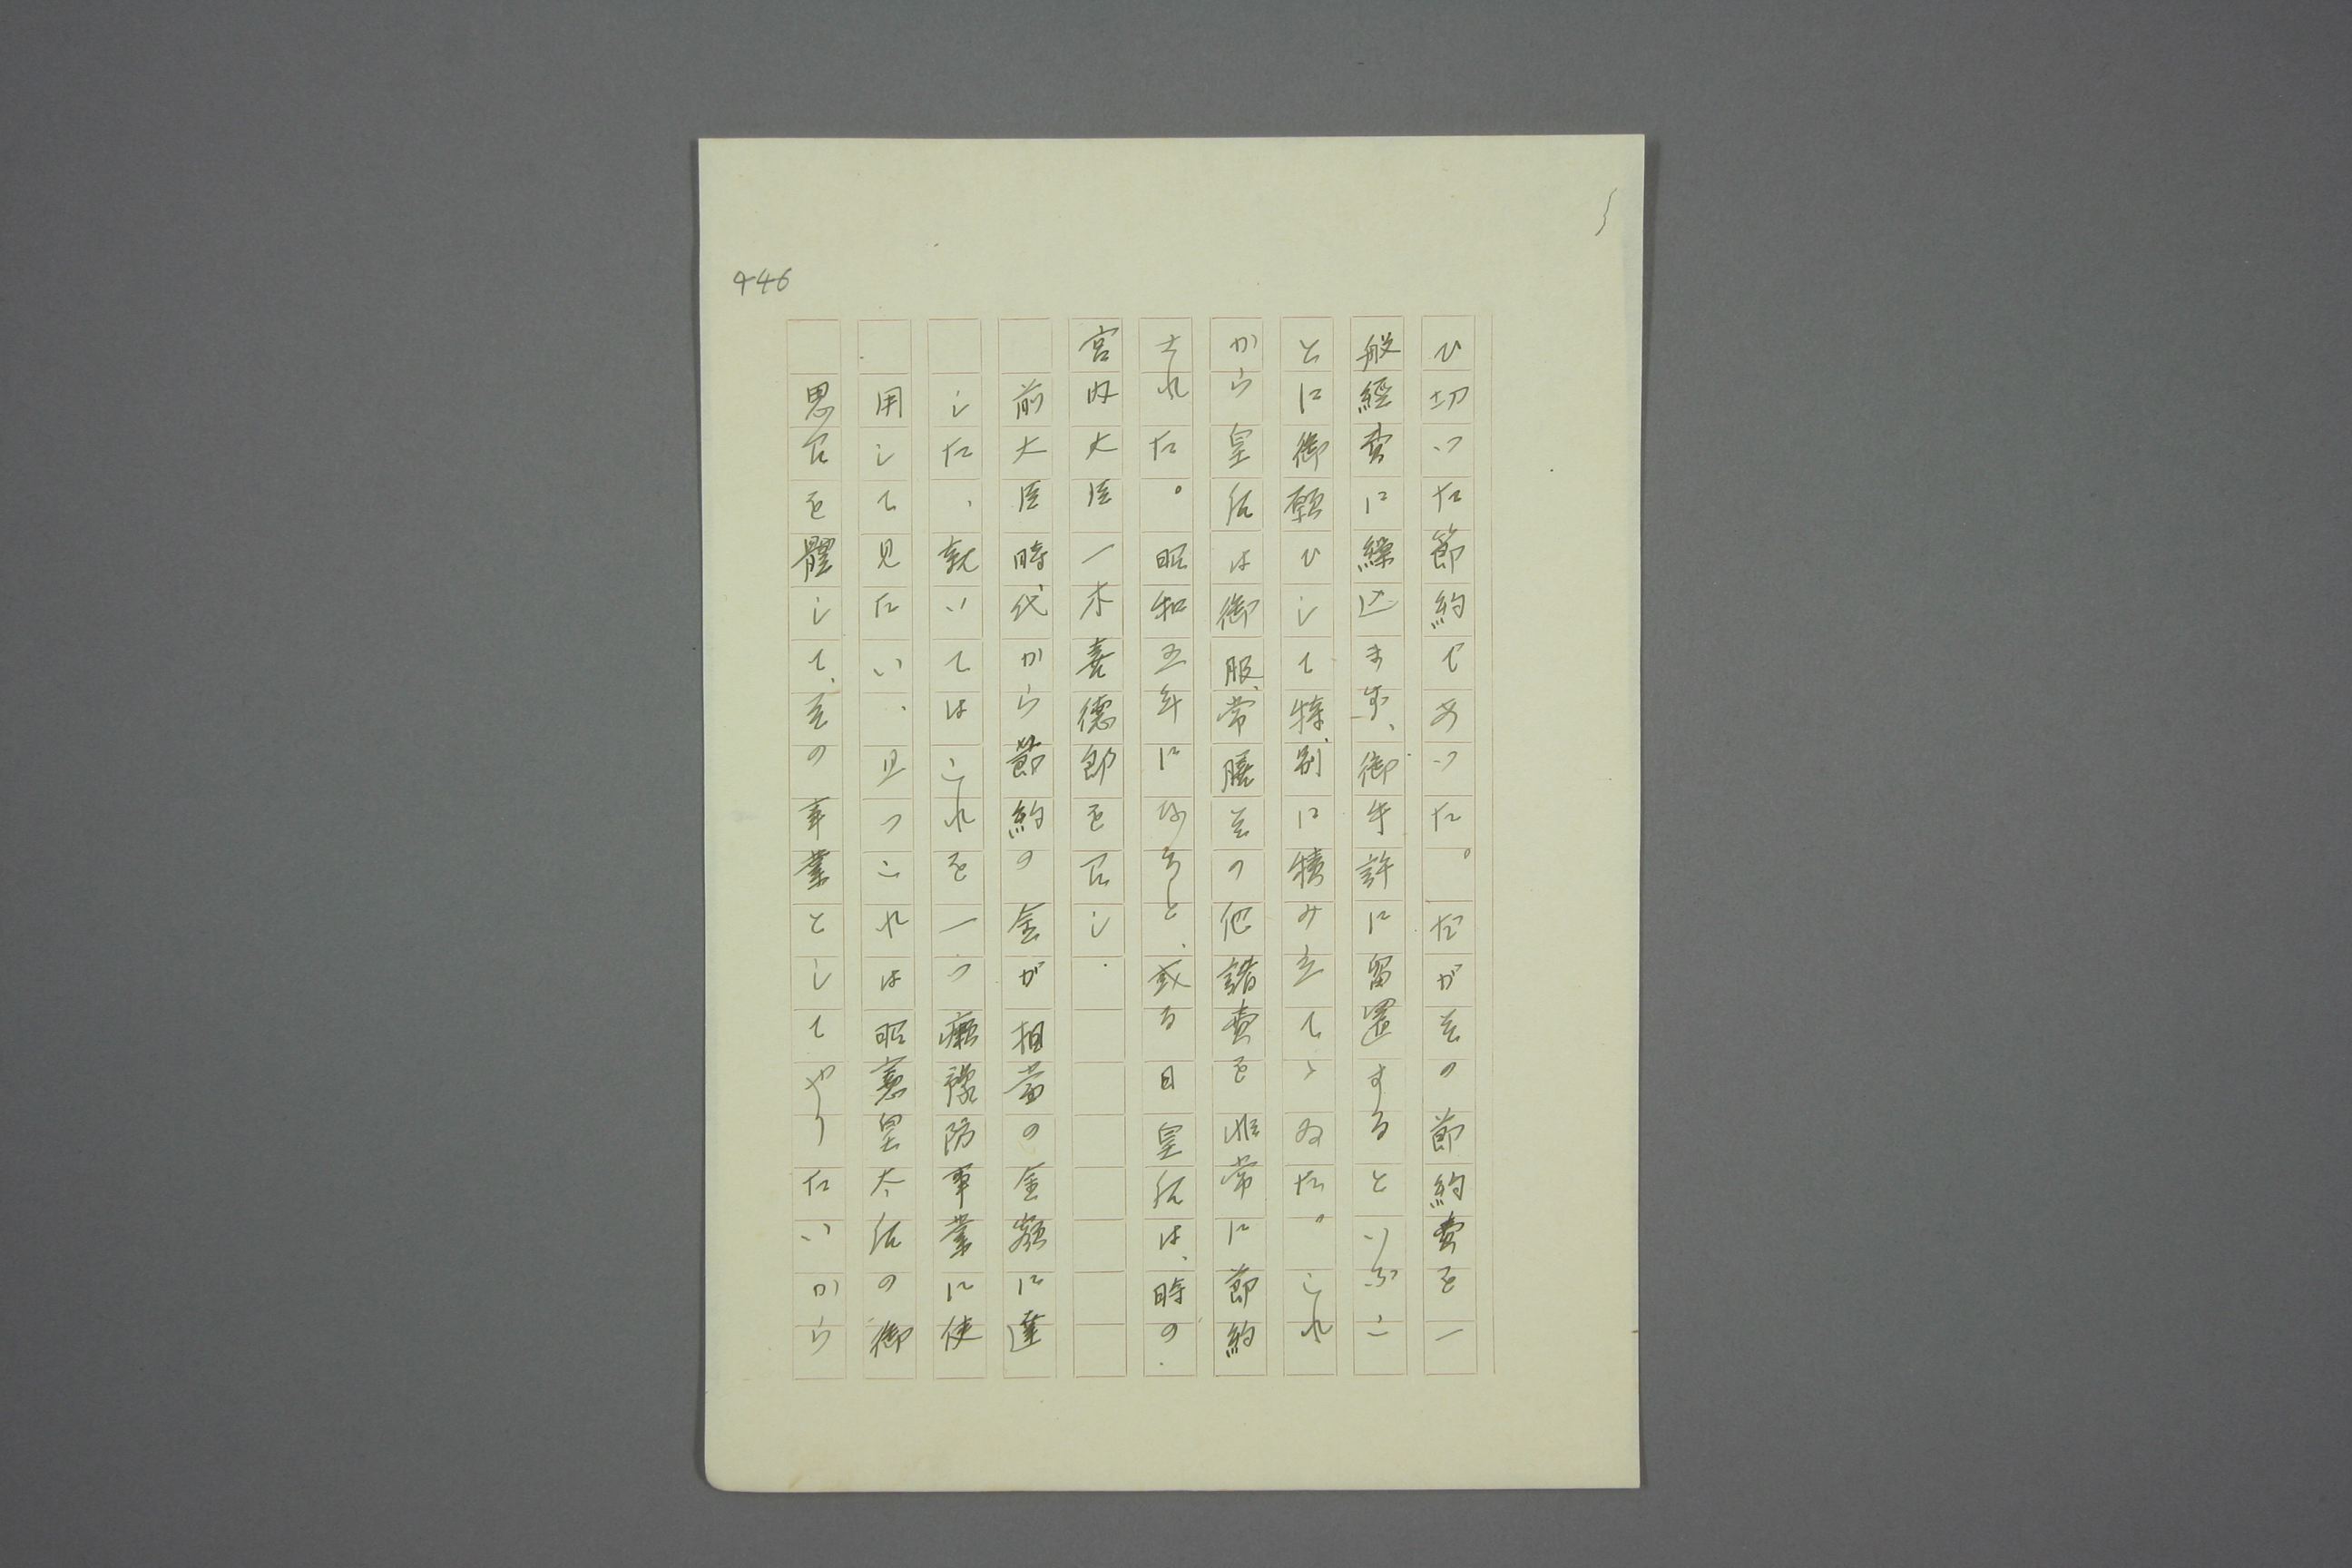 446
ひ切つた節約であつた。だが其の節約費を一
般經費に繰込まず、御手許に留置するといふこ
とに御願ひして特別に積み立てゝゐた。これ
から皇后は御服、常膳其の他諸費を非常に節約
された。昭和五年になると、或る日皇后は、時の
宮内大臣一木喜德郎を召し、
前大臣時代から節約の金が相當の金額に達
した、就いてはこれを一つ癩豫防事業に使
用して見たい、且つこれは昭憲皇太后の御
思召を體して、其の事業としてやりたいから